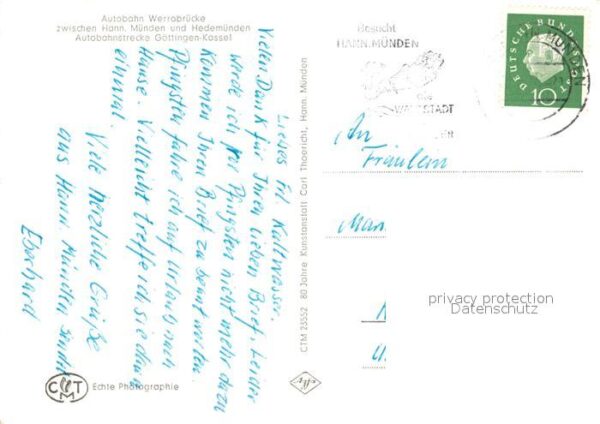 Autobahn Werrabrücke
zwischen Hann. Münden und Hedemünden
Autobahnstrecke Göttingen-Kassel
Liebes Frl. Kaltwasser.
Vielen Dank für Ihren lieben Brief. Leider
werde ich vor Pfingsten nicht mehr dazu
kommen Ihren Brief zu beantworten.
Pfingsten fahre ich auf Urlaub nach
Hause. Vielleicht treffe ich sie dann
einmal.
Viele herzliche Grüße
aus Hann. Münden sendet
Eberhard
CTM 23552 80 Jahre Kunstanstalt Carl Thoericht, Hann. Münden
CTM
Echte Photographie
Besucht
HANN. MÜNDEN
die
WALDSTADT
MÜNDEN
DEUTSCHE BUNDESPOST
10
An
Fräulein
Man
privacy protection
Datenschutz